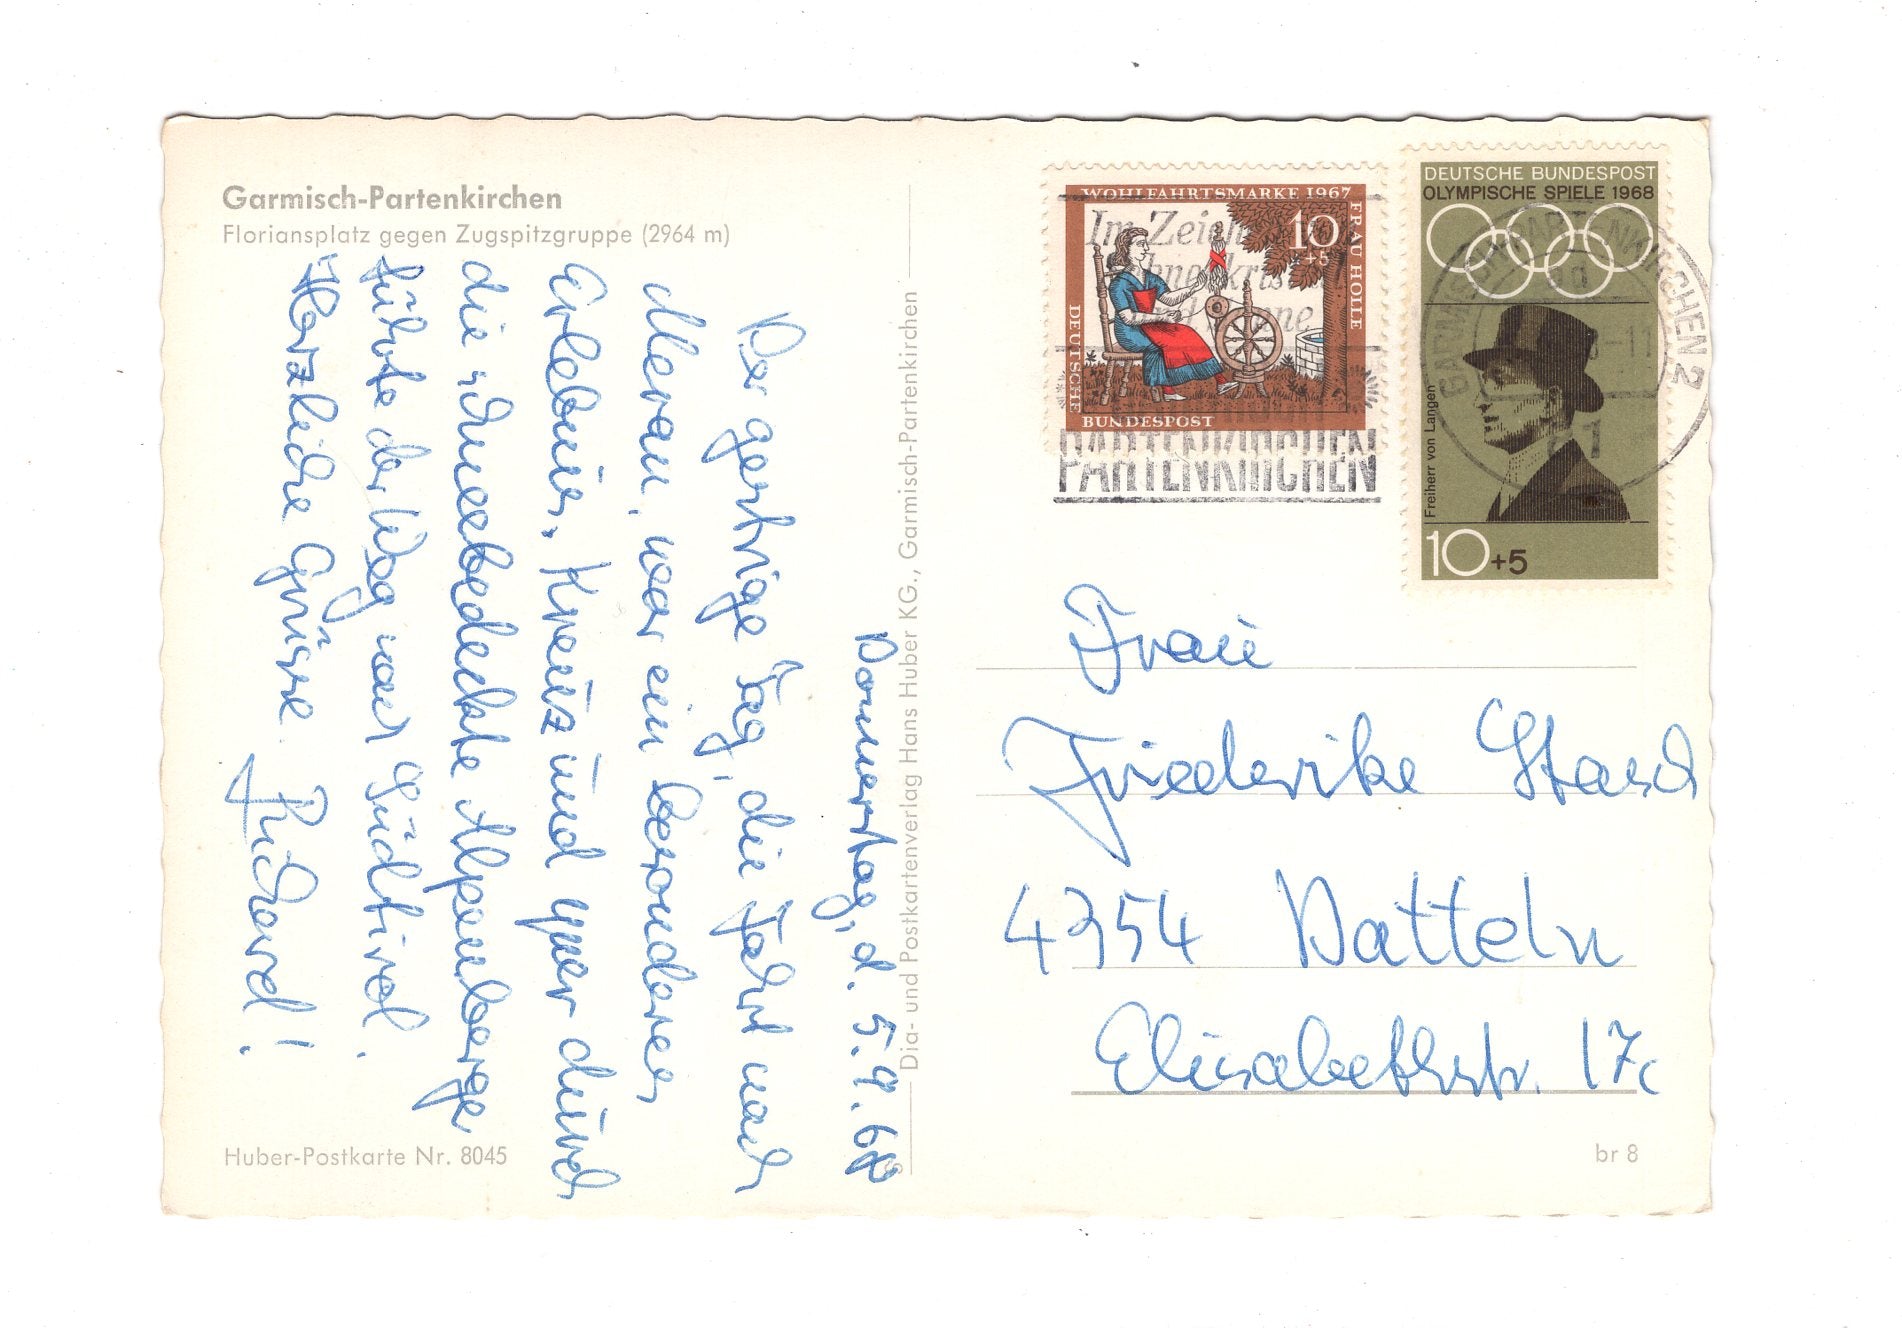 Garmisch-Partenkirchen
Floriansplatz gegen Zugspitzgruppe (2964 m)
Donnerstag, d. 5.9.68
Der gestrige Tag, die Fahrt nach
Meran, war ein besonderes
Erlebnis. Kreuz und quer durch
die schneebedeckte Alpenberge
führte der Weg nach Südtirol.
Herzliche Grüsse
Richard!
Huber-Postkarte Nr. 8045
Dia- und Postkartenverlag Hans Huber KG., Garmisch-Partenkirchen
WOHLFAHRTSMARKE 1967
FRAU HOLLE
10
+5
DEUTSCHE
BUNDESPOST
Im Zeichen von
PARTENKIRCHEN
DEUTSCHE BUNDESPOST
OLYMPISCHE SPIELE 1968
Freiherr von Langen
10+5
GARMISCH-PARTENKIRCHEN 2
Frau
Friederike Stasch
4354 Datteln
Elisabethstr. 17c
br 8